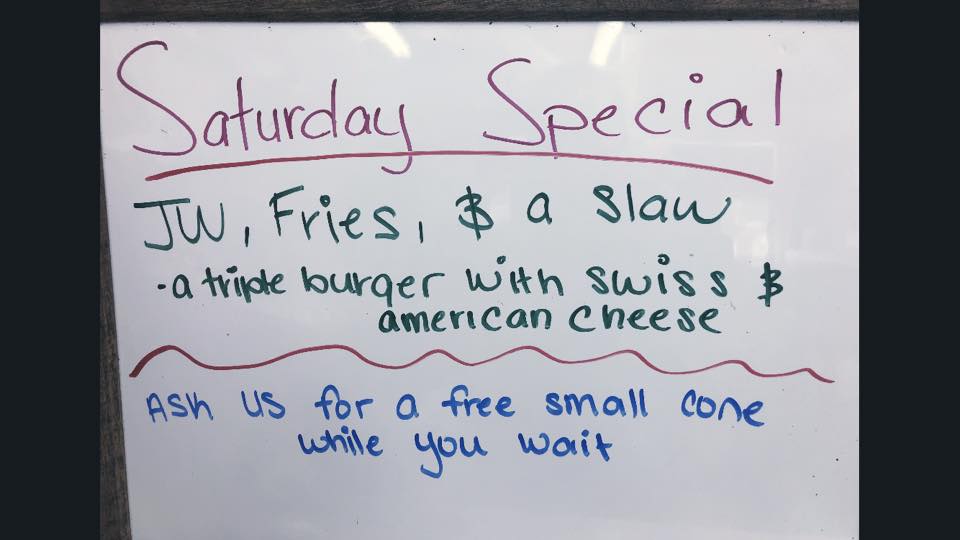 Saturday Special
JW, Fries, & a slaw
• a triple burger with swiss &
american cheese
Ask us for a free small cone
while you wait